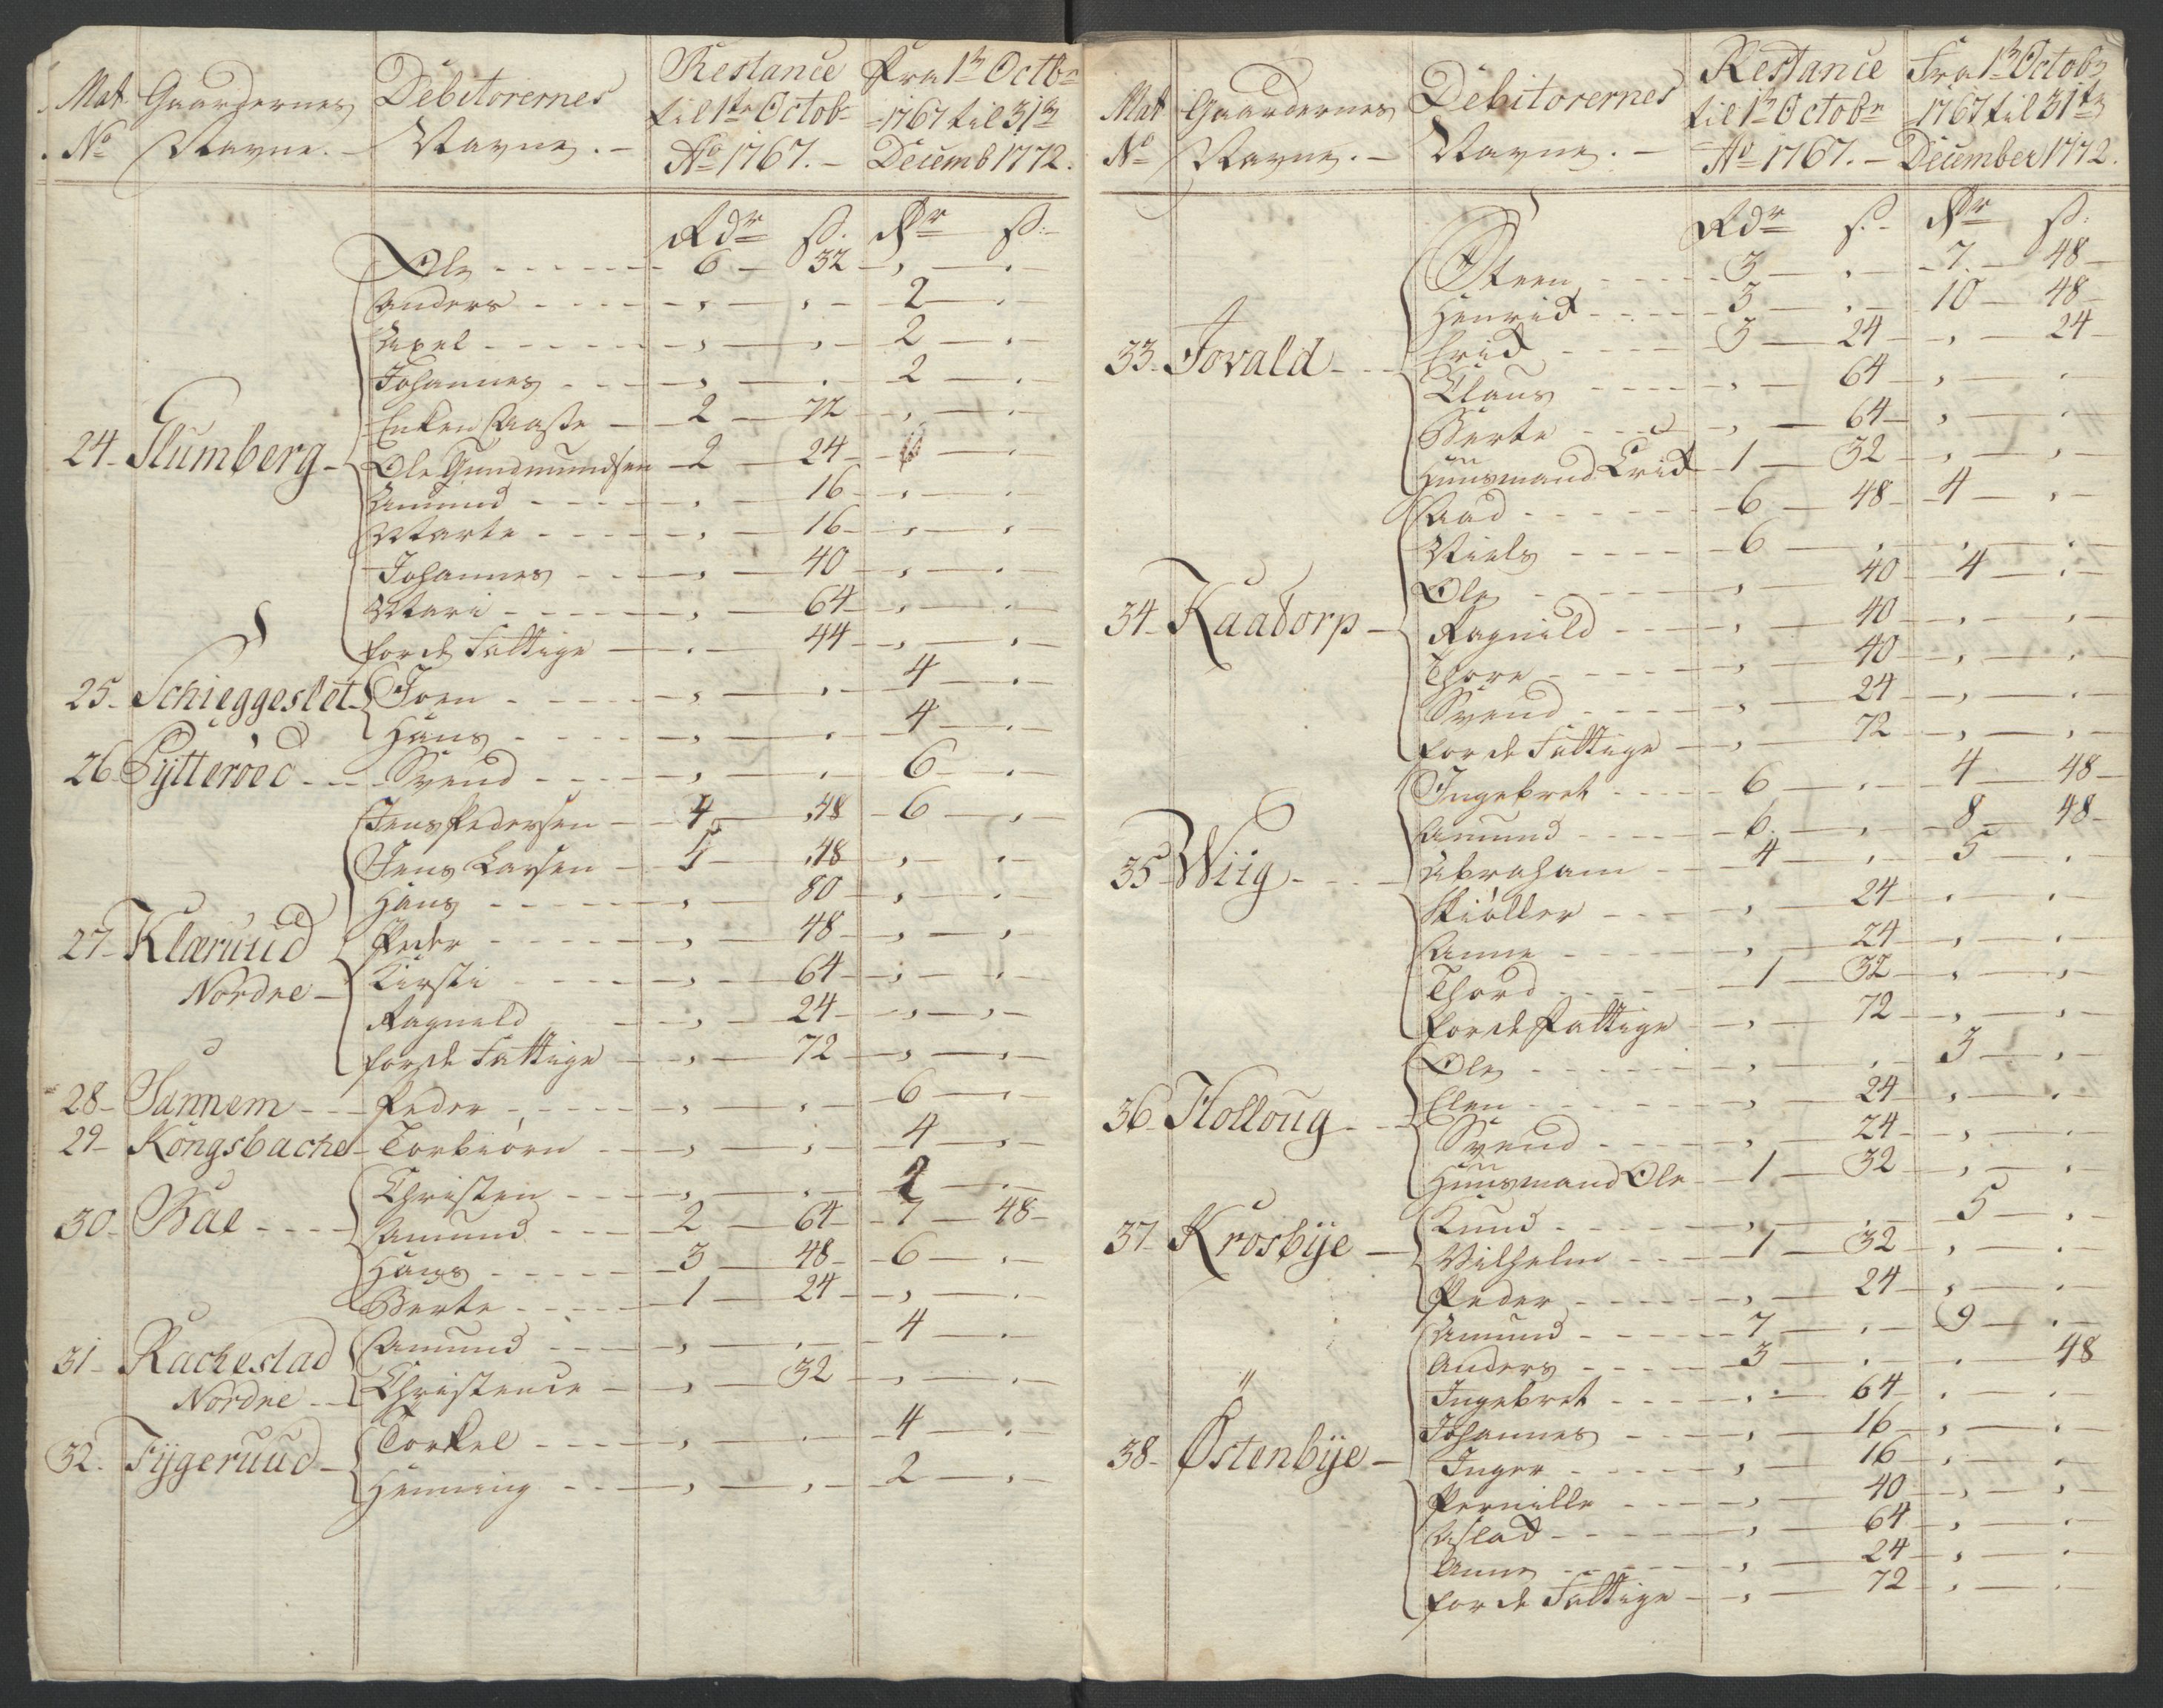 Mat No Gaardernes Navne. Debitorernes Navne. Restance til 1te Octob. Ao 1767. Fra 1te Octbr 1767 til 31te Decemb 1772.
Rdr s. Rdr s.
Ole 6 32 , .
Anders , , 2 .
Axel , , 2 .
Johannes , . 2 .
Enken Aaste 2 72 , .
24. Slumberg Ole Gundmundsen 2 24 .
Amund , 16 , .
Marte , 16 , ,
Johannes , 40 , .
Mari , 64 , .
for de Fattige . 44 , .
25. Schieggeslet Joen , . 4 .
Hans , . 4 .
26. Pytteröed Svend , . 6 .
Jens Pedersen 4 48 6 ,
Jens Larsen 48 , .
Hans , 80 , .
27. Klæruud Nordre Peder , 48 , ,
Kirsti , 64 , .
Ragneld , 24 , ,
for de Fattige , 72 , ,
28. Sannem Peder , , 6 .
29. Kongsbache Torbiörn , , 4 ,
30. Bae Christen , . 2 .
Amund 2 64 7 48
Hans 3 48 6 .
Berte 1 24 , .
31. Rachestad Nordre Amund , . 4 .
Christence , 32 , .
32. Fygeruud Torkel , . 4 .
Henning , , 2 ,
Mat No Gaardernes Navne. Debitorernes Navne. Restance til 1te Octobr Ao 1767. Fra 1te Octobr 1767 til 31te December 1772.
Rdr s. Rdr s.
Steen 3 . 7 48
Henrick 3 . 10 48
33. Tovald Erick 3 24 , 24
Claus , 64 , .
Berte , 64 , .
Huusmand Erick 1 32 , ,
Aad 6 48 4 ,
Niels 6 . . .
Ole , 40 4 .
34. Kaatorp Ragnild , 40 , ,
Thore , 40 , .
Svend , 24 , .
for de Fattige , 72 , ,
Ingebret 6 . 4 48
Amund 6 , 8 48
35. Wiig Abraham 4 . 5 .
Skiöller , 24 , .
Anne , 24 , .
Thord 1 32 , ,
for de Fattige , 72 , ,
Ole , . 3 ,
36. Holloug Elen , 24 , .
Svend , 24 , .
Huusmand Ole 1 32 , ,
37. Krosbye Knud , . 5 ,
Vilhelm 1 32 , .
Peder , 24 , .
Amund 7 . 9 .
Anders 3 . . 48
Ingebret , 64 . .
Johannes , 16 , .
38. Østenbye Inger , 16 , .
Pernille , 40 , ,
Aslack , 64 , .
Anne , 24 , .
for de Fattige , 72 , .